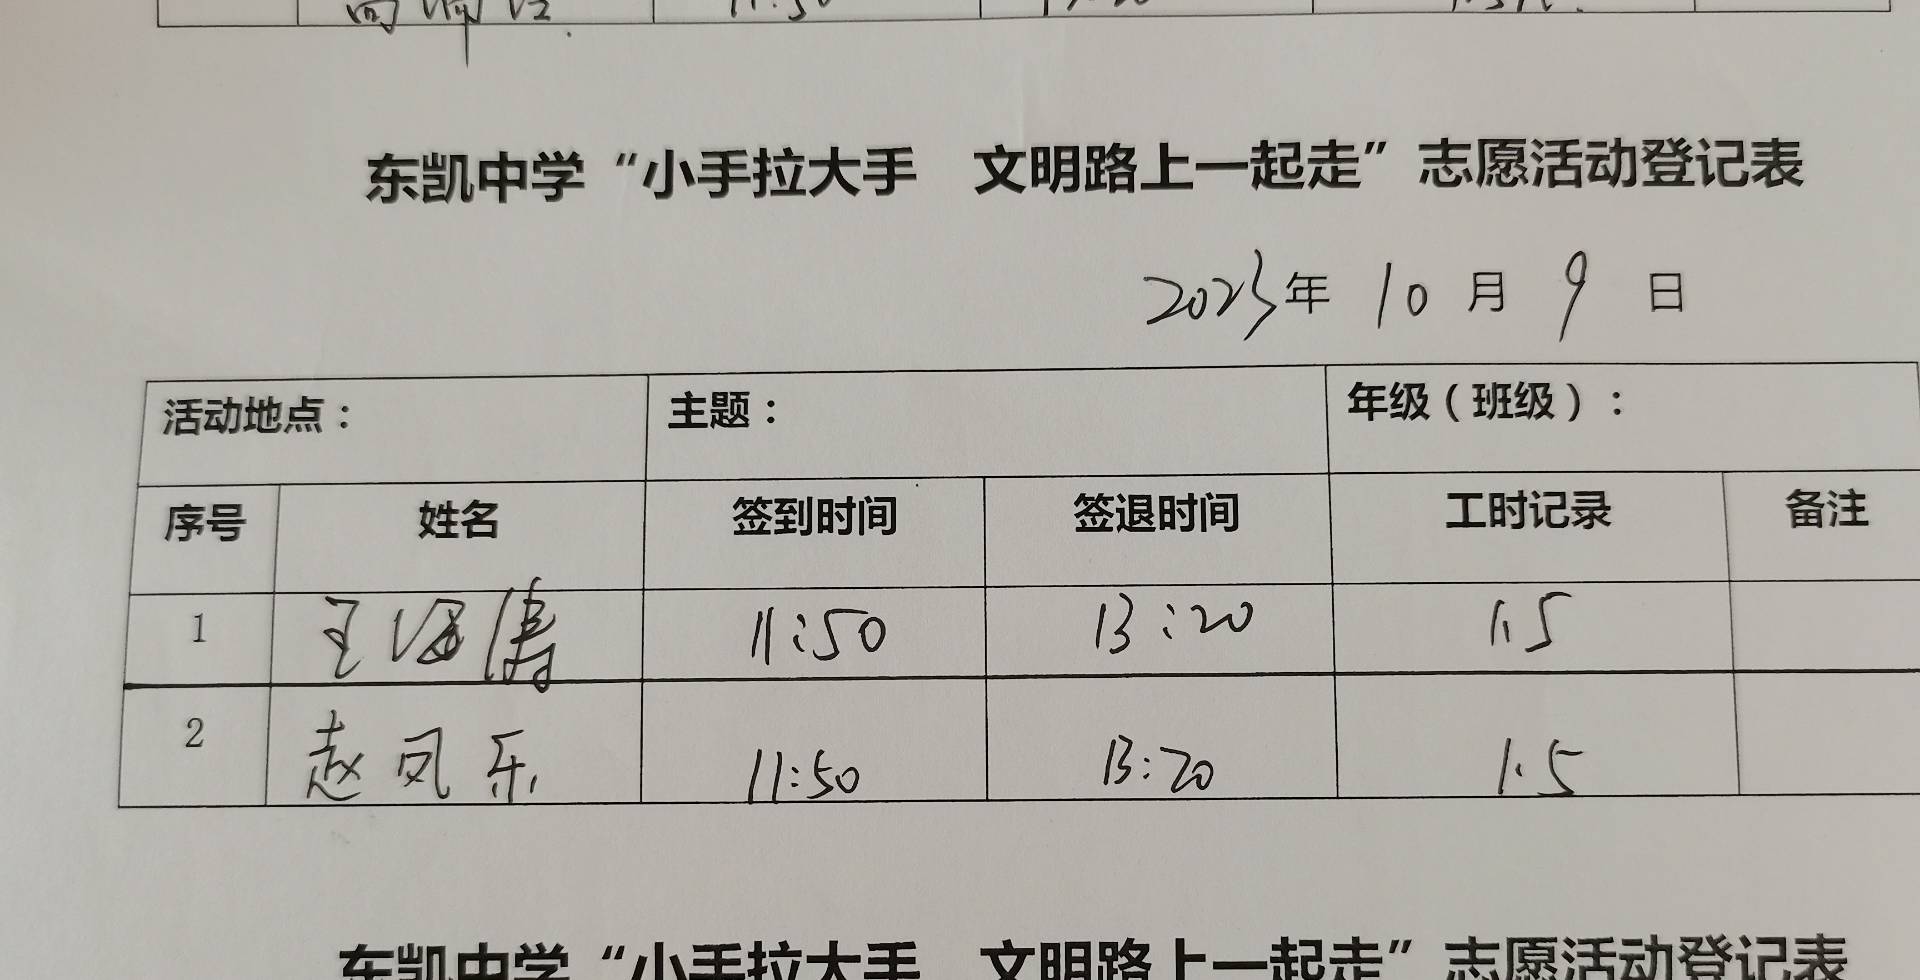 东凯中学“小手拉大手　文明路上一起走”志愿活动登记表
2023年 10 月 9 日
活动地点： 主题： 年级（班级）：
序号 姓名 签到时间 签退时间 工时记录 备注
1 王海涛 11:50 13:20 1.5
2 赵凤乐 11:50 13:20 1.5
东凯中学“小手拉大手　文明路上一起走”志愿活动登记表